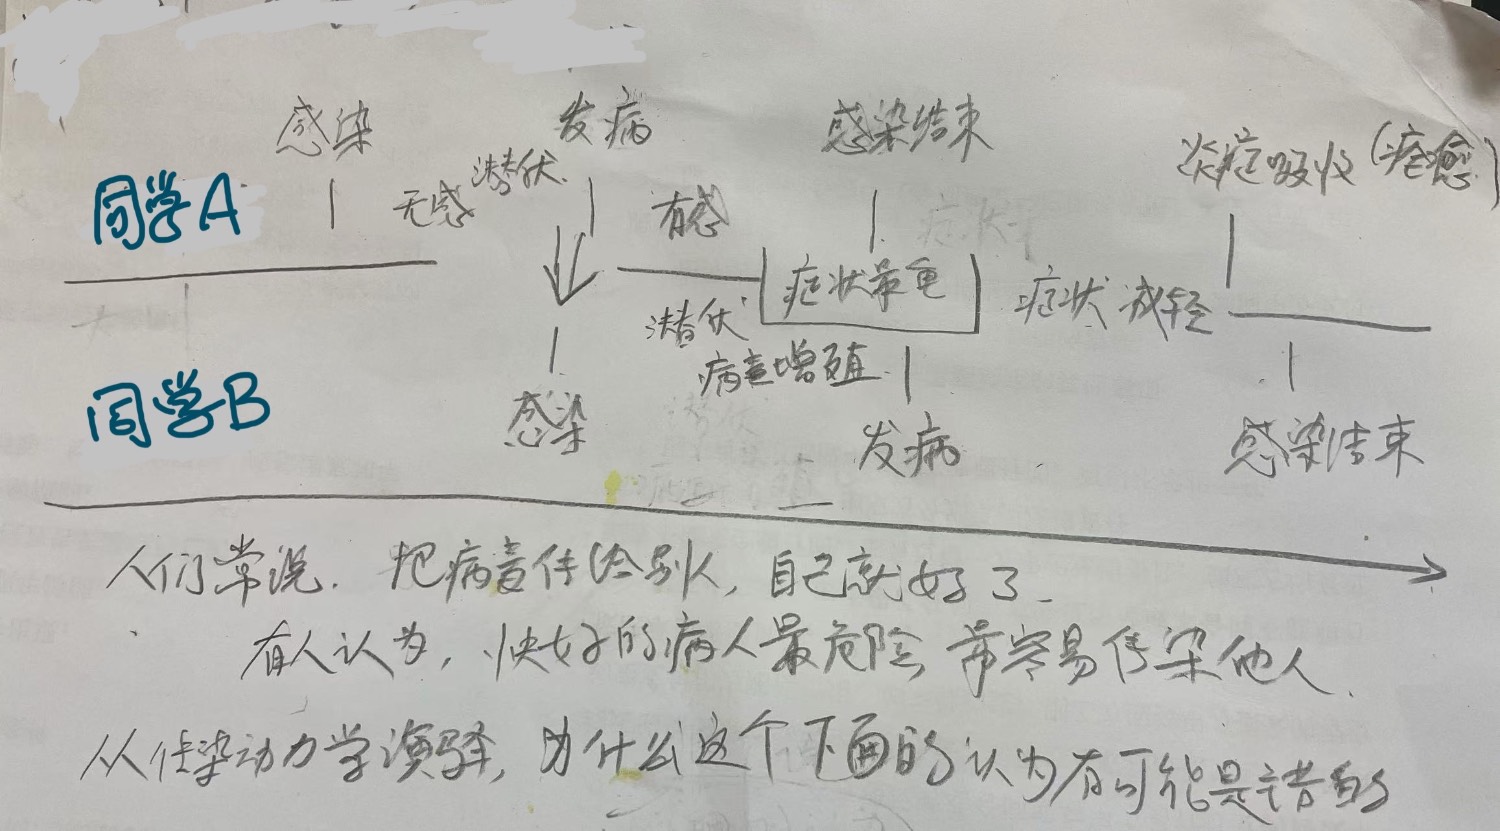 感染 发病 感染结束 炎症吸收(痊愈)
同学A 无感 潜伏 有感
症状最重
潜伏 症状减轻
病毒增殖
同学B 感染 发病 感染结束
人们常说. 把病毒传给别人, 自己就好了.
有人认为, 快好的病人最危险, 最容易传染他人.
从传染动力学演绎, 为什么这个下面的认为有可能是错的